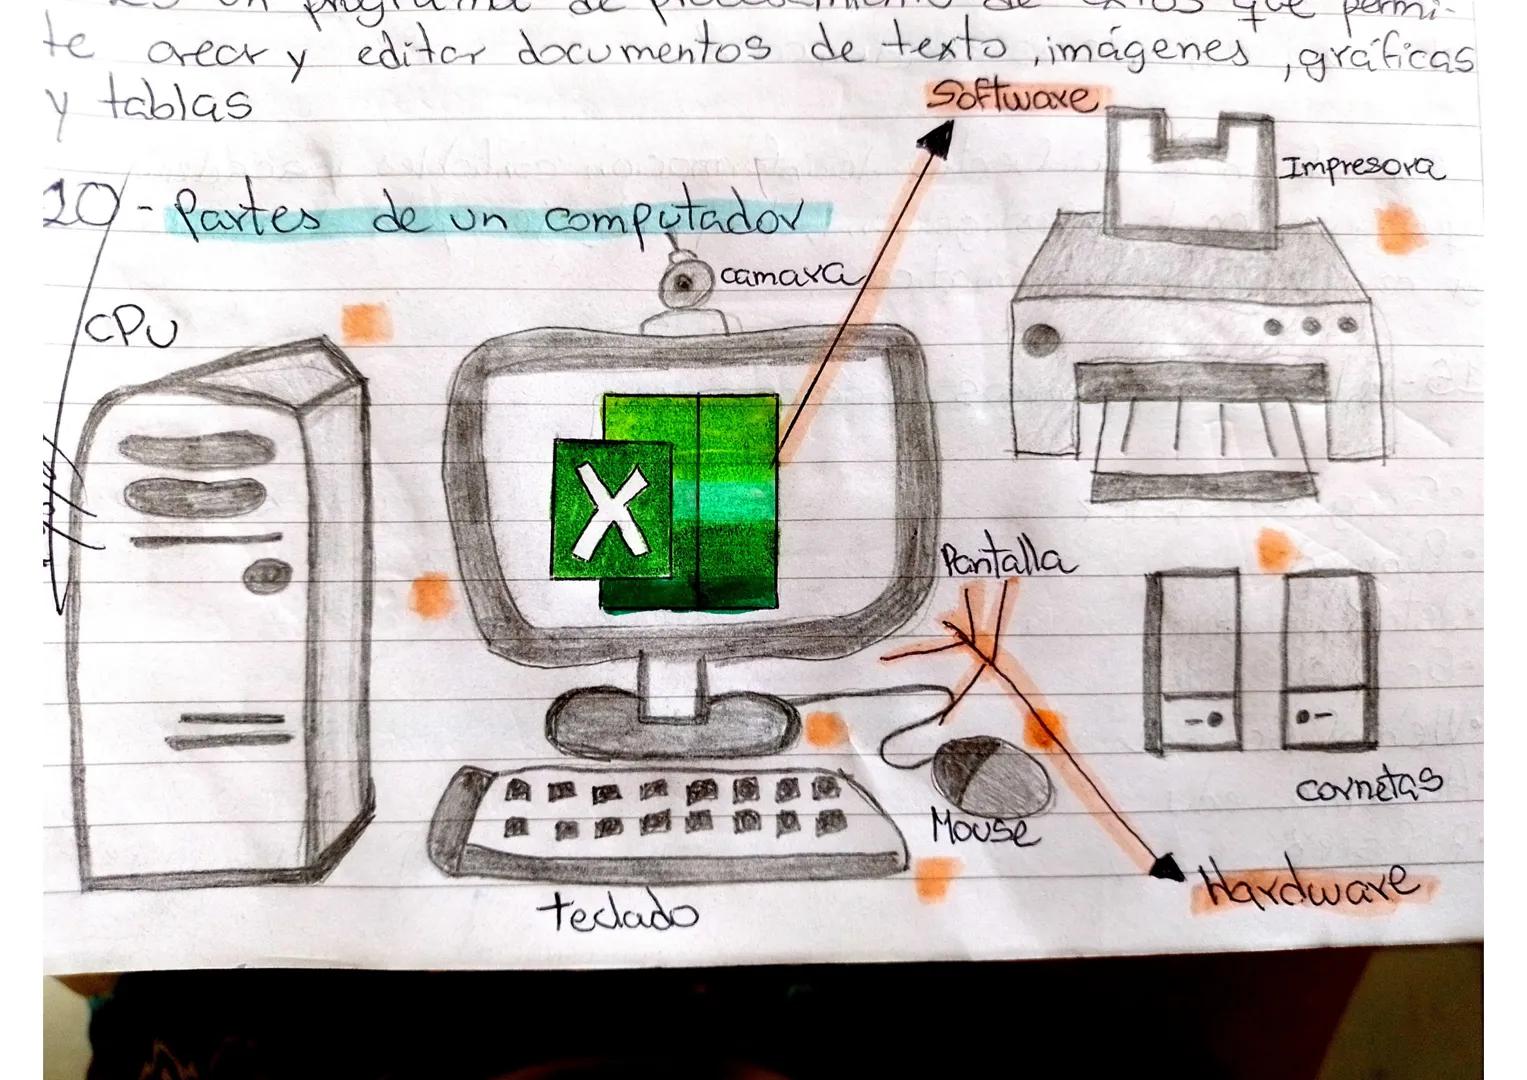 Es un programa de procesamiento de textos que permi-
te crear y editar documentos de texto, imágenes, gráficas
y tablas
Software
Impresora
20 - Partes de un computador
camara
CPU
X
Pantalla
cornetas
Mouse
Hardware
teclado